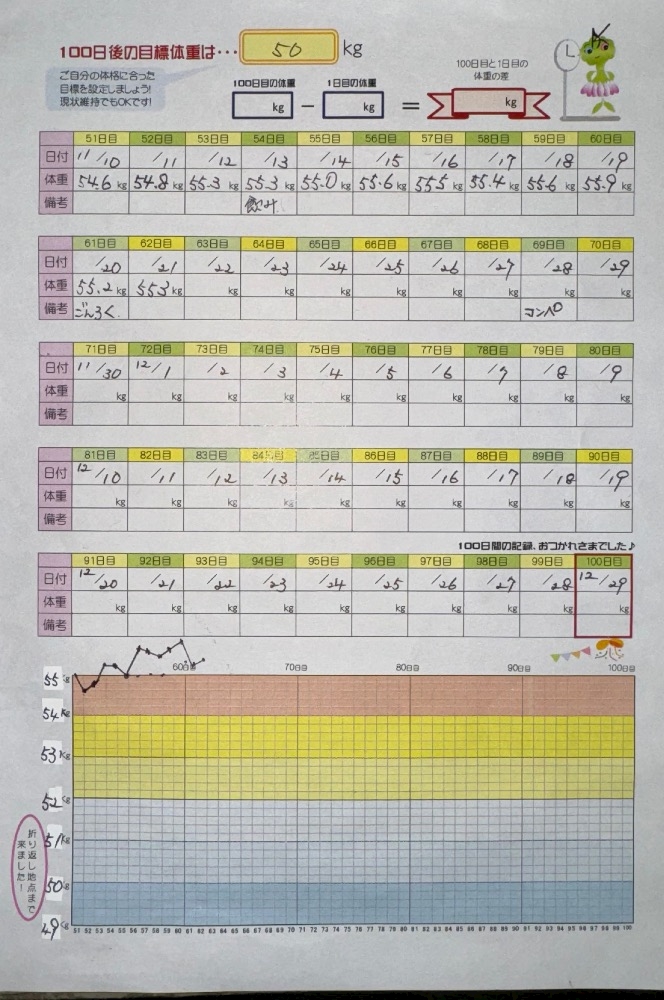 100日後の目標体重は・・・ 50 kg
ご自分の体格に合った
目標を設定しましょう!
現状維持でもOKです!
100日目の体重 1日目の体重 100日目と1日目の
体重の差
kg − kg = kg
51日目 52日目 53日目 54日目 55日目 56日目 57日目 58日目 59日目 60日目
日付 11/10 /11 /12 /13 /14 /15 /16 /17 /18 /19
体重 54.6 kg 54.8 kg 55.3 kg 55.3 kg 55.0 kg 55.6 kg 555 kg 55.4 kg 556 kg 55.9 kg
備考 飲み
61日目 62日目 63日目 64日目 65日目 66日目 67日目 68日目 69日目 70日目
日付 /20 /21 /22 /23 /24 /25 /26 /27 /28 /29
体重 55.2 kg 553 kg kg kg kg kg kg kg kg kg
備考 ごんろく コンペ
71日目 72日目 73日目 74日目 75日目 76日目 77日目 78日目 79日目 80日目
日付 11/30 12/1 /2 /3 /4 /5 /6 /7 /8 /9
体重 kg kg kg kg kg kg kg kg kg kg
備考
81日目 82日目 83日目 84日目 85日目 86日目 87日目 88日目 89日目 90日目
日付 12/10 /11 /12 /13 /14 /15 /16 /17 /18 /19
体重 kg kg kg kg kg kg kg kg kg kg
備考
100日間の記録、おつかれさまでした♪
91日目 92日目 93日目 94日目 95日目 96日目 97日目 98日目 99日目 100日目
日付 12/20 /21 /22 /23 /24 /25 /26 /27 /28 12/29
体重 kg kg kg kg kg kg kg kg kg kg
備考
60日目 70日目 80日目 90日目 100日目
55 kg
54 kg
53 kg
52 kg
51 kg
50 kg
49 kg
折り返し地点まで
来ました!
51 52 53 54 55 56 57 58 59 60 61 62 63 64 65 66 67 68 69 70 71 72 73 74 75 76 77 78 79 80 81 82 83 84 85 86 87 88 89 90 91 92 93 94 95 96 97 98 99 100